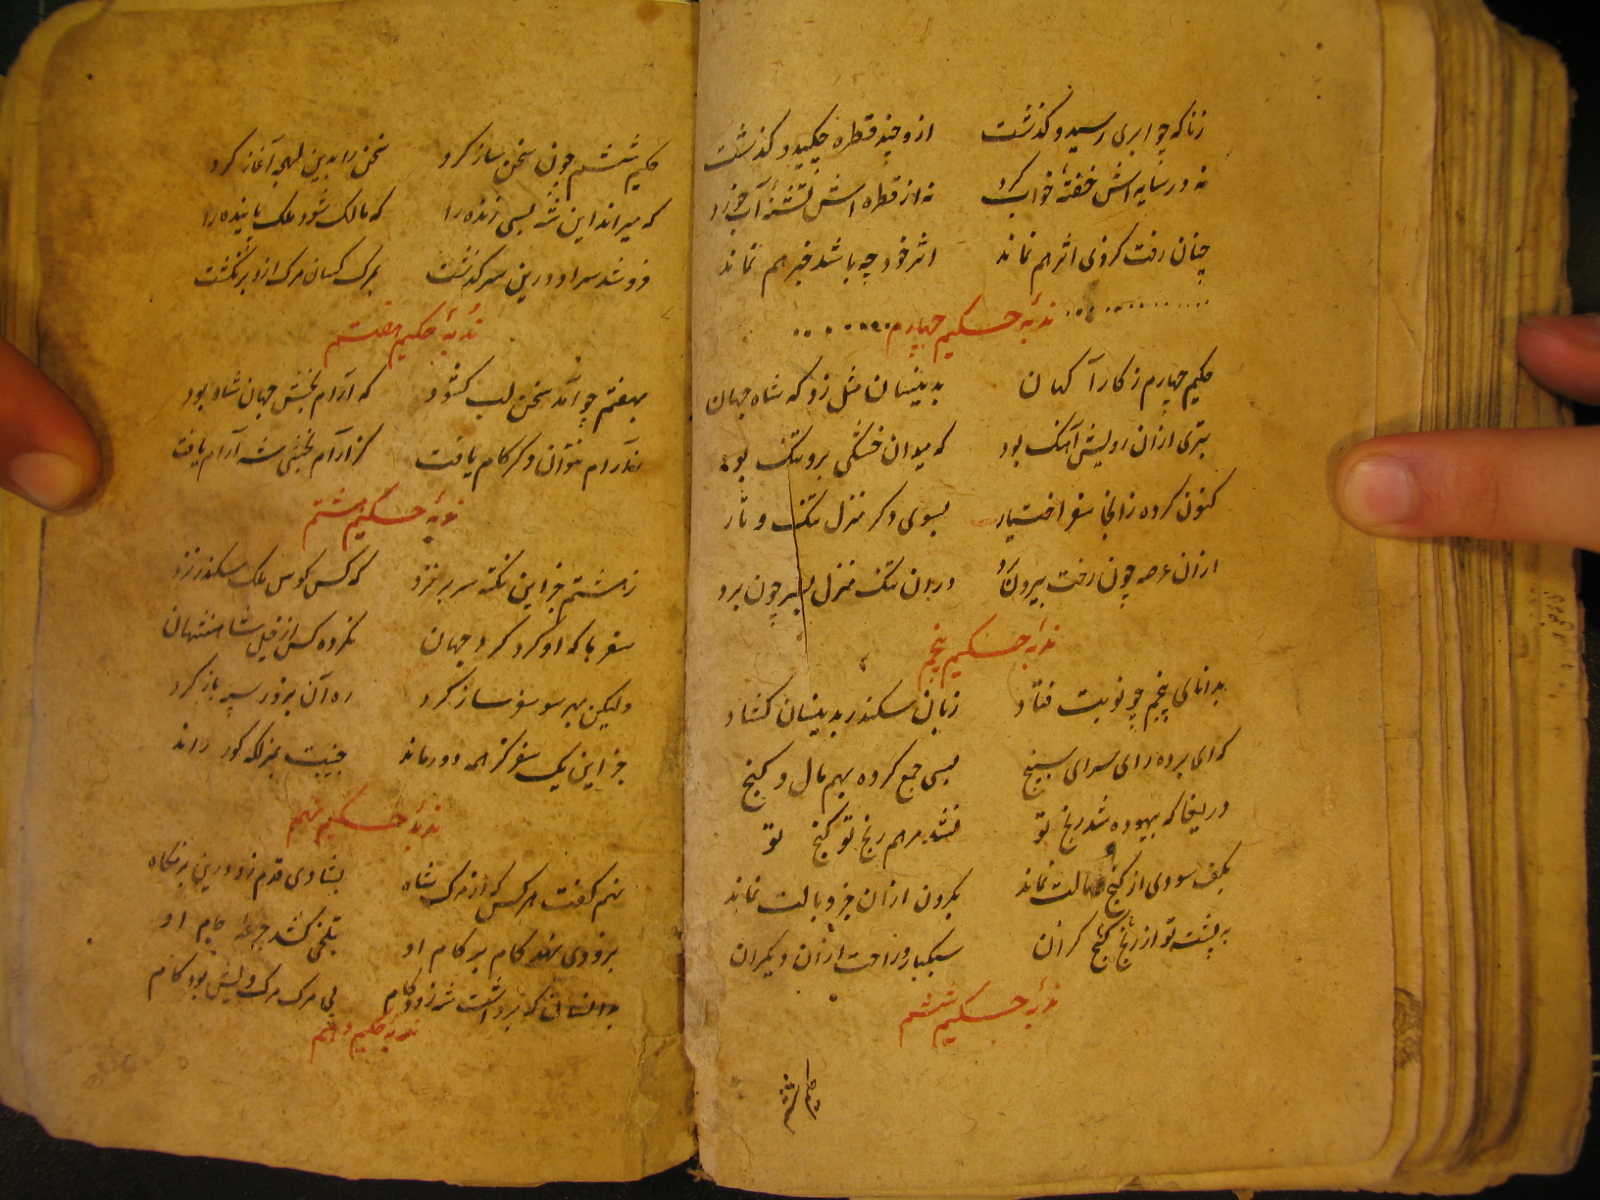 زناکه چو ابری رسید و گذشت ازو چند قطره چکید و گذشت
نه در سایه اش خفتهٔ خواب کرد نه از قطره اش تشنهٔ آب خورد
چنان رفت کز وی اثر هم نماند اثر خود چه باشد خبر هم نماند
ندبهٔ حکیم چهارم
حکیم چهارم ز کار آگهان بدینسان مثل زد که شاه جهان
بتری ازان رویش آهنگ بود که میدان خشکی برو تنگ بود
کنون کرده زانجا سفر اختیار بسوی دگر منزل تنگ و تار
ازان عرصه چون رخت بیرون برد دران تنگ منزل بسر چون برد
ندبهٔ حکیم پنجم
بدانای پنجم چو نوبت فتاد زبان سکندر بدینسان گشاد
که ای برده رای سرای سپنج بسی جمع کرده بهم مال و گنج
دریغا که بیهوده شد رنج تو نشد مرهم رنج تو گنج تو
بکف سودی از گنج مالت نماند بگردن ازان جز وبالت نماند
به پشت تو از رنج گنج گران سبکبار و راحت ازان دیگران
ندبهٔ حکیم ششم
حکیم ششم
حکیم ششم چون سخن ساز کرد سخن را بدین لهجه آغاز کرد
که میراند این شه بسی زنده را که مالک شود ملک پاینده را
فرو شد سر او درین سرگذشت بمرگ کسان مرگ ازو برنگشت
ندبهٔ حکیم هفتم
بهفتم چو آمد سخن لب گشود که آرام بخش جهان شاه بود
بآرام نتوان دگر کام یافت کز آرام بخشی شه آرام یافت
ندبهٔ حکیم هشتم
ز هشتم جز این نکته سر بر نزد که کس کوس ملک سکندر نزد
سفرها که او کرد گرد جهان نکرده کس از خیل شاهنشهان
ولیکن بهر سو سفر ساز کرد ره آن بزور سپه باز کرد
جز این یک سفر کز همه دور ماند جنیبت بمنزلگه گور راند
ندبهٔ حکیم نهم
نهم گفت هر کس که از مرگ شاه بشادی قدم زد درین بزمگاه
بزودی نهد گام بر گام او بتلخی کشد جرعه جام او
بدانسان که برداشت شه زود گام پی مرگ مرگ ویش بود کام
ندبهٔ حکیم دهم